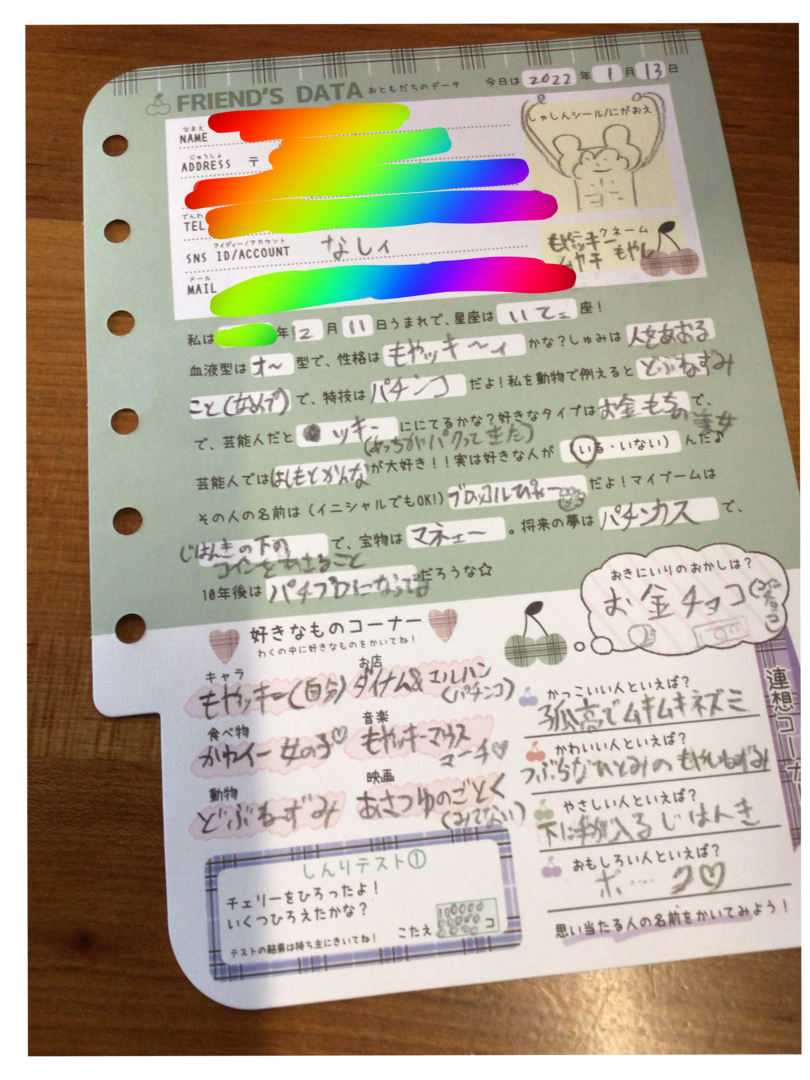 FRIEND'S DATA おともだちのデータ 今日は 2022 年 1 月 13 日
なまえ
NAME
じゅうしょ
ADDRESS 〒
でんわ
TEL
アイディー/アカウント
SNS ID/ACCOUNT なしィ
メール
MAIL
しゃしんシール/にがおえ
クネーム
もやッキー
ムヤキ もやし
私は 年 12 月 11 日うまれで、星座は いてこ 座!
血液型は オ〜 型で、性格は もやッキ〜ィ かな?しゅみは 人をあおる
こと(女のみプ) で、特技は パチンコ だよ!私を動物で例えると どぶねずみ
で、芸能人だと ッキー ににてるかな?好きなタイプは お金もちの美女 で、
(あっちがパクってきた)
芸能人では はしもとかんな が大好き!!実は好きな人が (いる・いない) んだ♪
その人の名前は (イニシャルでもOK!) ブロッコルてぃー だよ!マイブームは
じはんきの下の
コインをあさること で、宝物は マネェー 。将来の夢は パチンカス で、
10年後は パチプロになってる だろうな☆
おきにいりのおかしは?
お金チョコ
好きなものコーナー
わくの中に好きなものをかいてね!
キャラ
もやッキー(自分)
お店
ダイナム& マルハン
(パチンコ)
食べ物
かわイー女の子♡
音楽
もやッキーマウス
マーチ♡
動物
どぶねずみ
映画
あさつゆのごとく
(みてない)
連想コーナ
かっこいい人といえば?
孤高でムキムキネズミ
かわいい人といえば?
つぶらなひとみのもやしねずみ
やさしい人といえば?
下に手が入るじはんき
おもしろい人といえば?
ボ…ク♡
思い当たる人の名前をかいてみよう!
しんりテスト①
チェリーをひろったよ!
いくつひろえたかな?
こたえ コ
テストの結果は持ち主にきいてね!